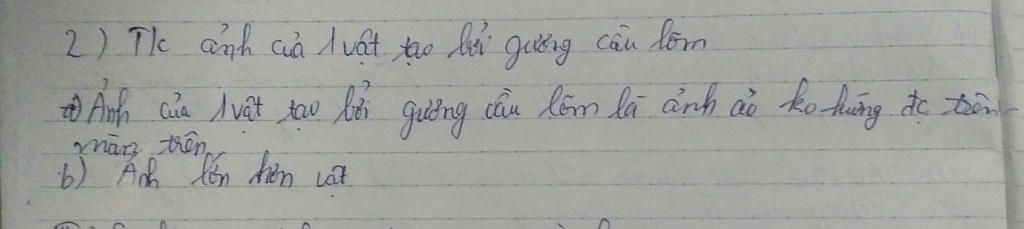 2) T/c ảnh của 1 vật tạo bởi gương cầu lõm
a) Ảnh của 1 vật tạo bởi gương cầu lõm là ảnh ảo ko hứng đc trên
màn trên
b) Ảnh lớn hơn vật